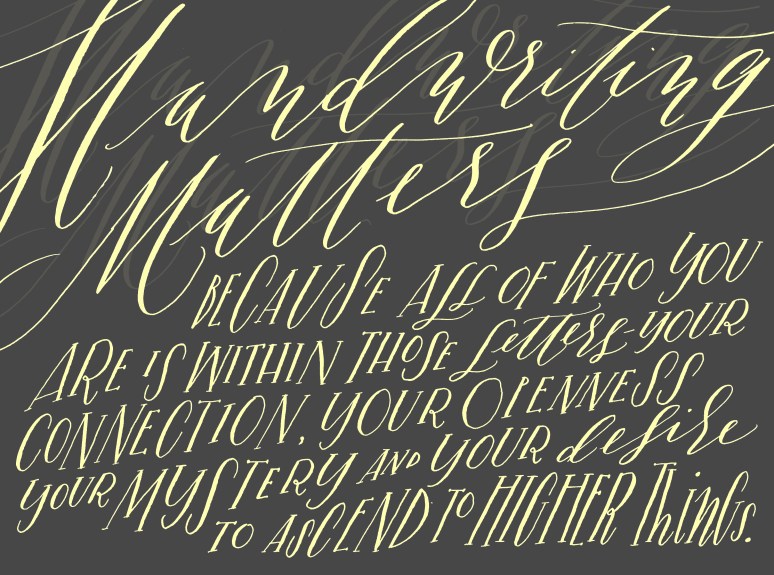 Handwriting
Matters
BECAUSE ALL OF WHO YOU
ARE IS WITHIN THOSE Letters-YOUR
CONNECTION, YOUR OPENNESS
YOUR MYSTERY AND YOUR desire
TO ASCEND TO HIGHER Things.